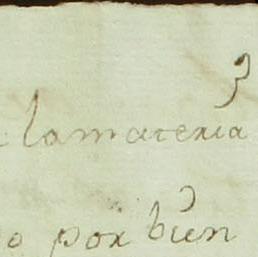 3
la materia
por bien